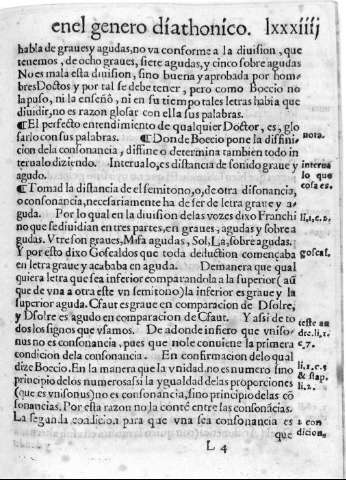 enel genero diathonico. lxxxiiij
habla de grauesy agudas,no va conforme a la diuision, que
tenemos, de ocho graues, siete agudas, y cinco sobre agudas
No es mala esta diuision, sino buena y aprobada por hom-
bresDoctos y por tal se debe tener, pero como Boecio no
la puso, ni la enseñó, ni en su tiempo tales letras habia que
diuidir,no es razon glosar con ella sus palabras.
¶El perfecto entendimiento de qualquier Doctor, es, glo
sarlo con sus palabras. ¶Donde Boecio pone la diffini-
cion dela consonancia, diffine o determina tambien todo in
terualo diziendo. Interualo,es distancia de sonido graue y
agudo.
nota.
interua
lo que
cosa es.
¶Tomad la distancia de el semitono,o,de otra disonancia,
o consonancia,necesariamente ha de ser de letra graue y a-
guda. Por lo qual en la diuision de las vozes dixo Franchi
no que se diuidian en tres partes,en graues, agudas y sobre a
gudas. Vtre son graues,Mifa agudas, Sol,La,sobre agudas.
Y por esto dixo Gofcaldos que toda deduction començaba
en letra graue y acababa en aguda. Demanera que qual
quiera letra que sea inferior comparandola a la superior (aũ
que de vna a otra este vn semitono) la inferior es graue y la
superior aguda. Cfaut es graue en comparacion de Dsolre,
y Dsolre es agudo en comparacion de Cfaut. Y asi de to
dos los signos que vsamos. De adonde infiero que vniso-
nus no es consonancia, pues que nole conuiene la primera
condicion dela consonancia. En confirmacion delo qual
dize Boecio.En la manera que la vnidad.no es numero sino
principio delos numeros:asi la ygualdad de las proporciones
(que es vnisonus) no es consonancia, sino principio delas cõ
sonancias. Por esta razon no la conté entre las consonãcias.
La segunda condicio, para que vna sea consonancia es
que
li,1,c,2,
gofcal.
teste au
dre.li,1.
c,7.
li,1.c,3
& stap.
li.2.
con
dicion.
L 4